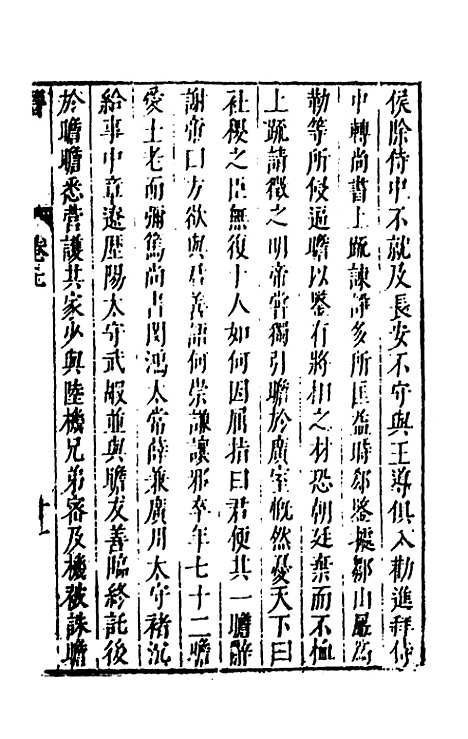 侯除侍中不就及長安不守與王導俱入勸進拜侍
中轉尚書上疏諫諍多所匡益時郗鑒據鄒山屢為
勒等所侵逼瞻以鑒有將相之材恐朝廷棄而不恤
上疏請徵之明帝嘗獨引瞻於廣室慨然憂天下曰
社稷之臣無復十人如何因屈指曰君便其一瞻辭
謝帝曰方欲與君善語何崇謙讓邪卒年七十二瞻
愛士老而彌篤尚書閔鴻太常薛兼廣川太守褚沉
給事中章遼歷陽太守武嘏並與瞻友善臨終託後
於瞻瞻悉營護其家少與陸機兄弟審及機被誅瞻
卷三七 十一